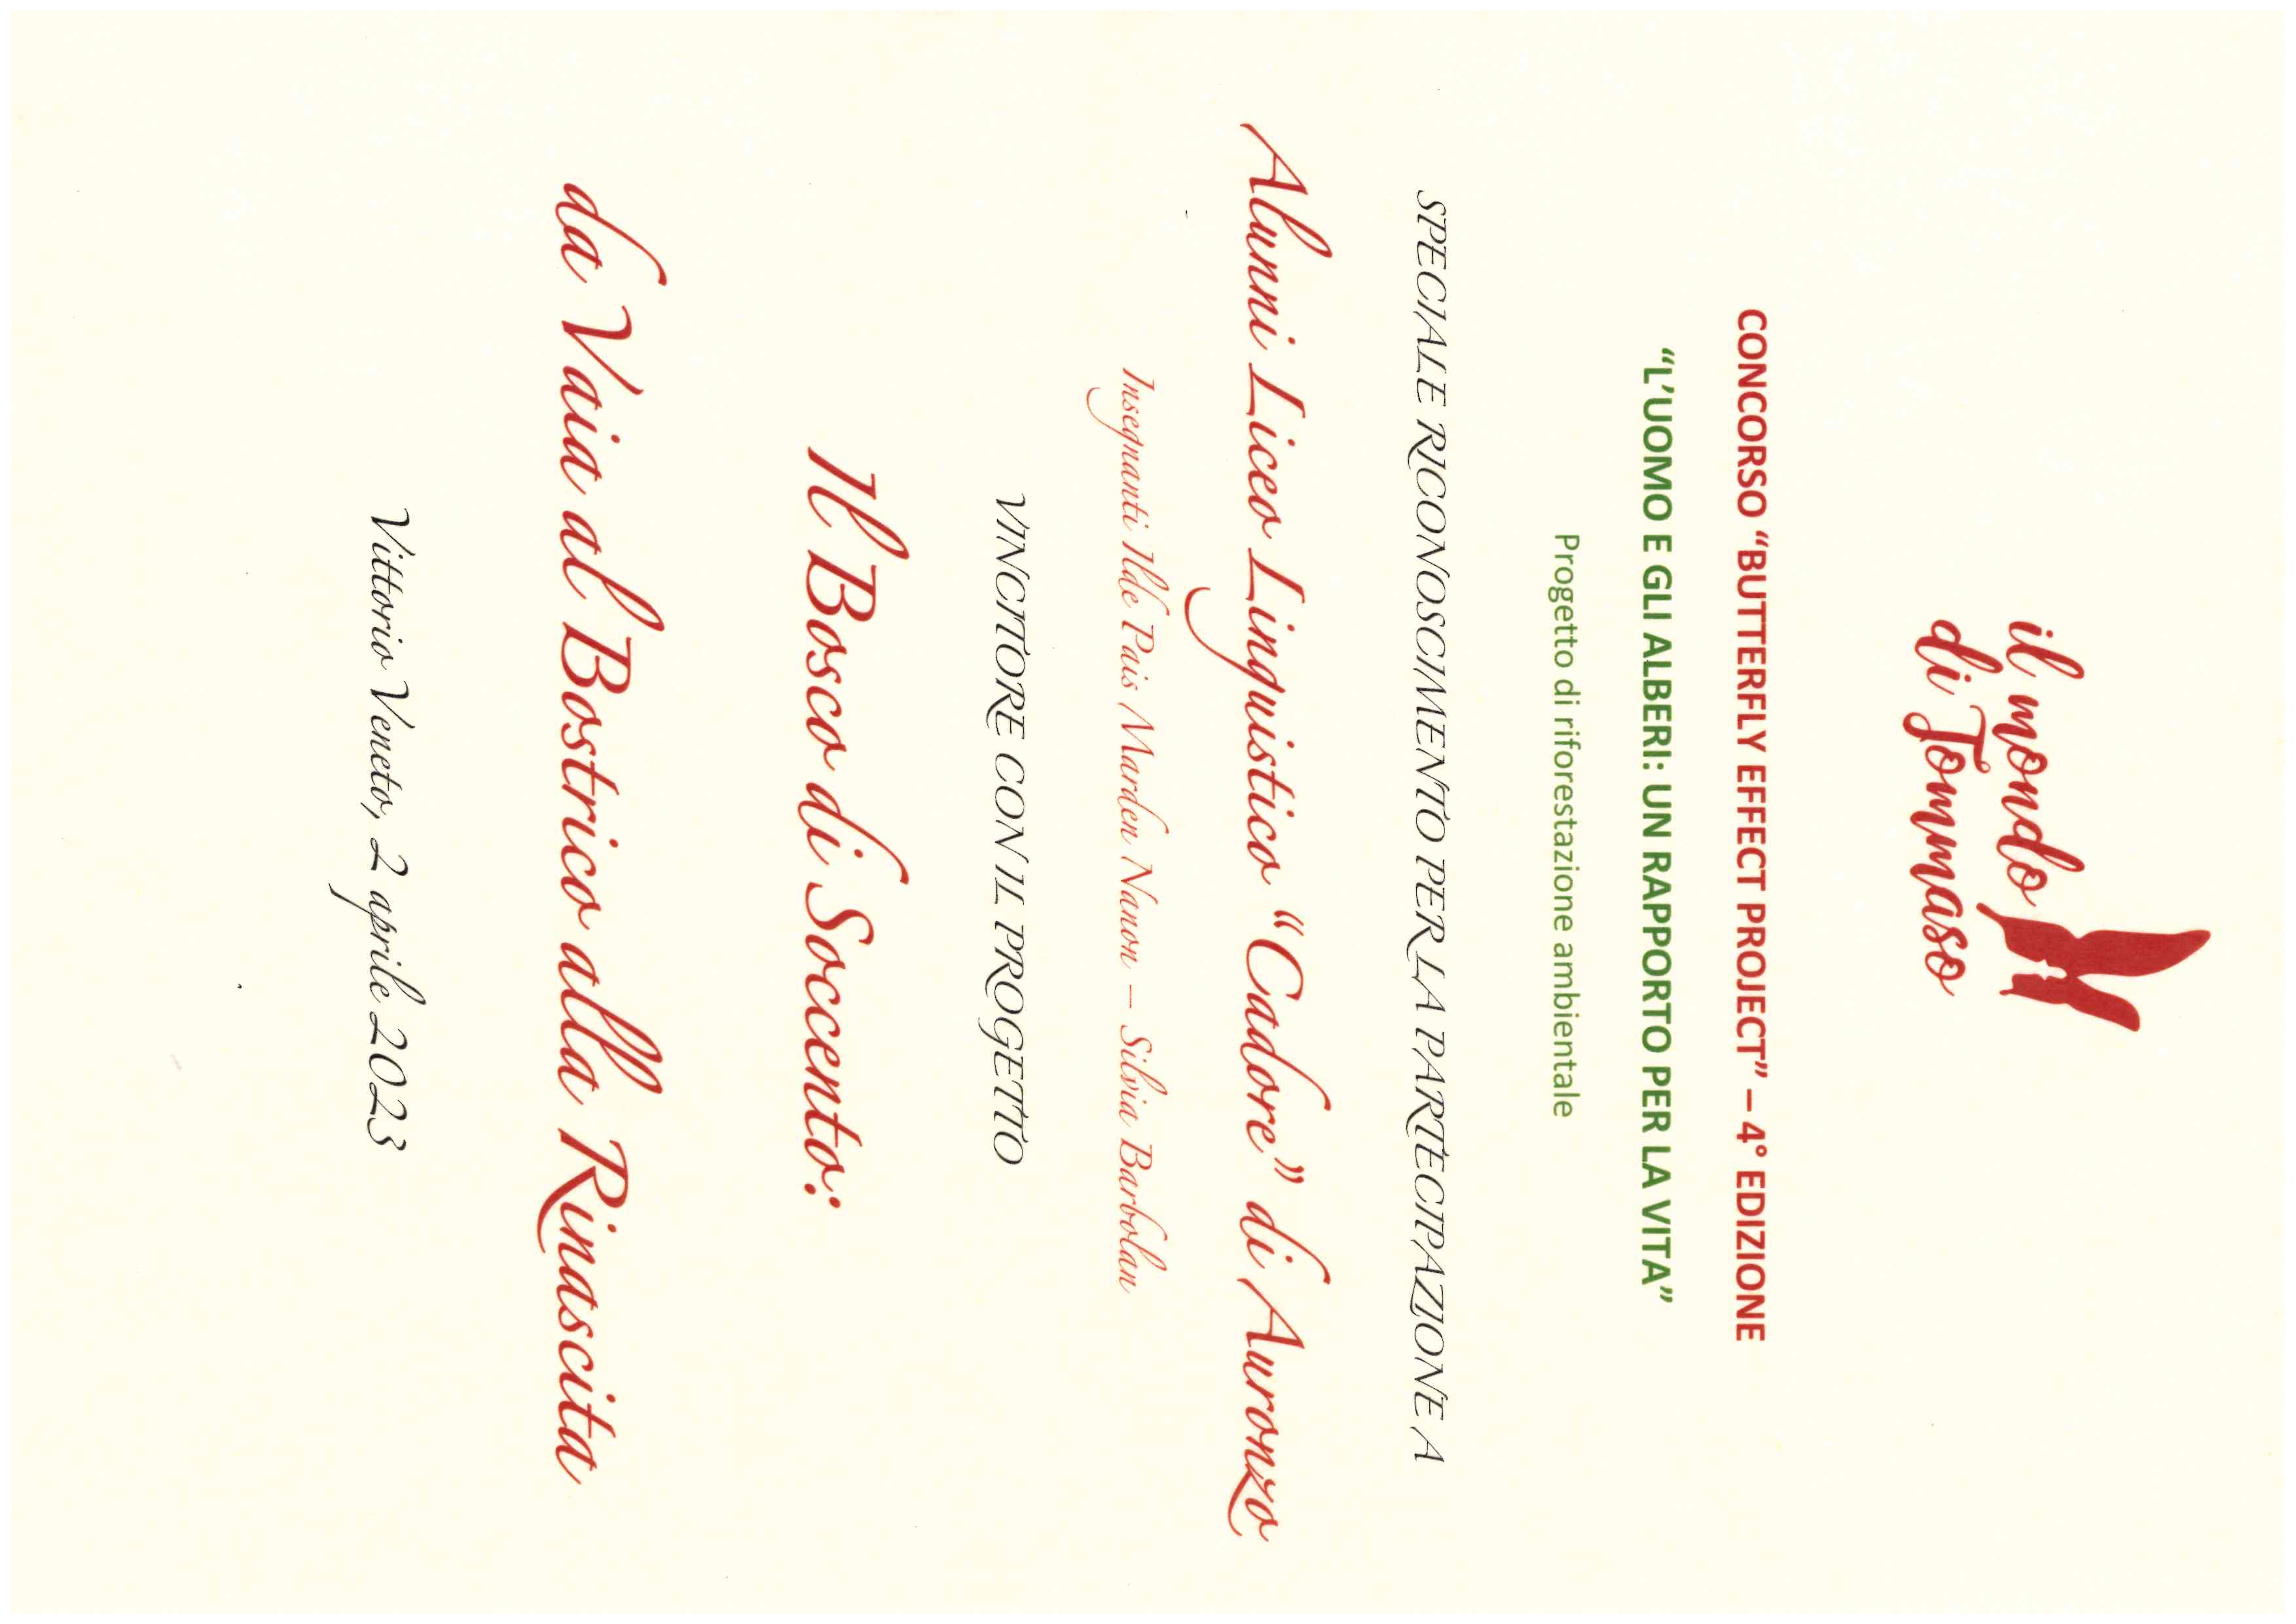 il mondo
di Tommaso
CONCORSO “BUTTERFLY EFFECT PROJECT” – 4° EDIZIONE
“L’UOMO E GLI ALBERI: UN RAPPORTO PER LA VITA”
Progetto di riforestazione ambientale
SPECIALE RICONOSCIMENTO PER LA PARTECIPAZIONE A
Alunni Liceo Linguistico “Cadore” di Auronzo
Insegnanti Ilde Pais Marden Nanon – Silvia Barbolan
VINCITORE CON IL PROGETTO
Il Bosco di Soccento:
da Vaia al Bostrico alla Rinascita
Vittorio Veneto, 2 aprile 2023